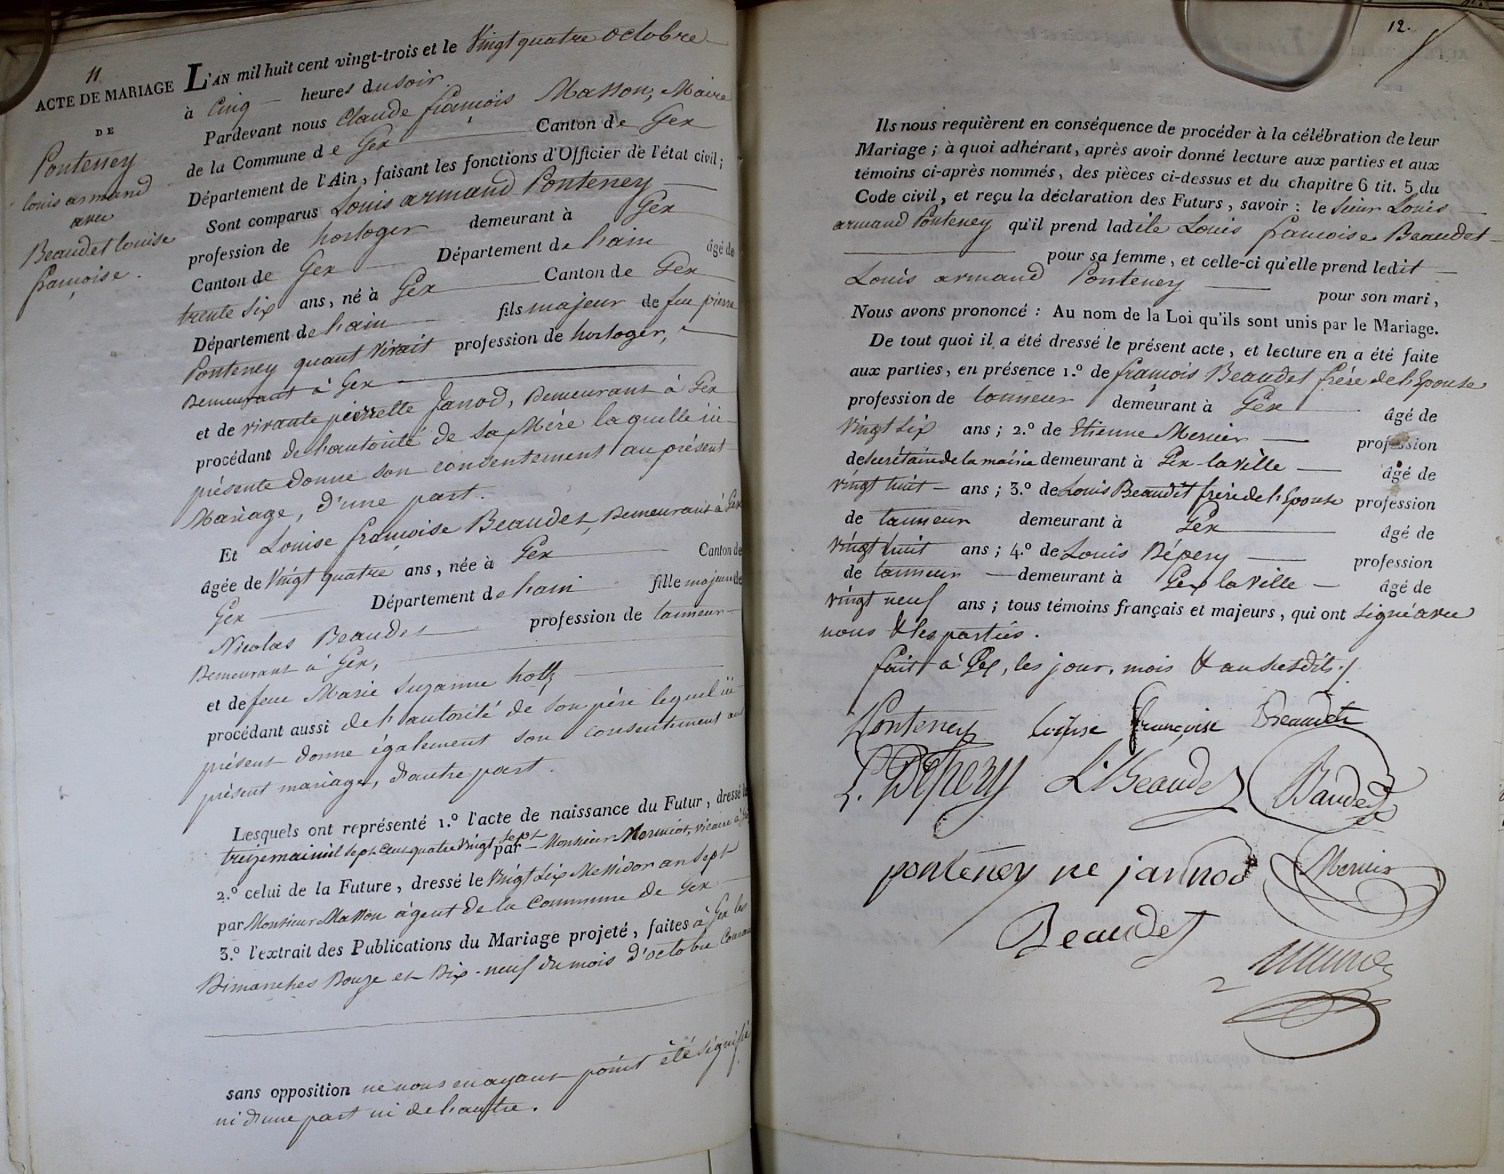 11
ACTE DE MARIAGE
DE
Ponteney
louis armand
avec
Beaudet louise
françoise.
L'AN mil huit cent vingt-trois et le Vingt quatre octobre
à Cinq heures du soir
Pardevant nous Claude françois Masson, Maire
de la Commune de Gex Canton de Gex
Département de l'Ain, faisant les fonctions d'Officier de l'état civil;
Sont comparus Louis armand Ponteney
profession de horloger demeurant à Gex
Canton de Gex Département de l'ain âgé de
trente six ans, né à Gex Canton de Gex
Département de l'ain fils majeur de feu pierre
Ponteney quant vivait profession de horloger,
Demeurant à Gex
et de vivante pierrette Janod, Demeurant à Gex
procédant de l'autorité de sa Mère laquelle ici
présente donne son consentement au présent
Mariage, d'une part.
Et Louise françoise Beaudet, Demeurant à Gex
âgée de Vingt quatre ans, née à Gex Canton de
Gex Département de l'ain fille majeure de
Nicolas Beaudet profession de tanneur
Demeurant à Gex,
et de feue Marie Suzanne hotz
procédant aussi de l'autorité de son père lequel ici
présent donne également son consentement au
présent mariage, d'autre part.
Lesquels ont représenté 1.º l'acte de naissance du Futur, dressé le
treize mai mil sept cent quatre vingt sept par Monsieur
2.º celui de la Future, dressé le Vingt six Messidor an sept
par Monsieur Masson agent de la Commune de Gex
3.º l'extrait des Publications du Mariage projeté, faites à Gex les
Dimanches Douze et Dix-neuf du mois d'octobre Courant
sans opposition ne nous en ayant point été signifié
ni d'une part ni de l'autre.
12.
Ils nous requièrent en conséquence de procéder à la célébration de leur
Mariage; à quoi adhérant, après avoir donné lecture aux parties et aux
témoins ci-après nommés, des pièces ci-dessus et du chapitre 6 tit. 5 du
Code civil, et reçu la déclaration des Futurs, savoir: le sieur Louis
armand Ponteney qu'il prend ladite Louis francoise Beaudet
pour sa femme, et celle-ci qu'elle prend ledit
Louis armand Ponteney pour son mari,
Nous avons prononcé: Au nom de la Loi qu'ils sont unis par le Mariage.
De tout quoi il a été dressé le présent acte, et lecture en a été faite
aux parties, en présence 1.º de françois Beaudet frère de l'Epouse
profession de tanneur demeurant à Gex âgé de
vingt six ans; 2.º de Etienne Mercier profession
de secrétaire de la mairie demeurant à Gex la ville âgé de
vingt huit ans; 3.º de Louis Beaudet frère de l'Epouse profession
de tanneur demeurant à Gex âgé de
vingt huit ans; 4.º de Louis Dépery profession
de tanneur demeurant à Gex la Ville âgé de
vingt neuf ans; tous témoins français et majeurs, qui ont signé avec
nous & les parties.
fait à Gex, les jour, mois & an susdits.
Ponteney louise françoise Beaudet
L. Dépery L. Beaudet Baudet
ponteney ne jannod Mercier
Beaudet